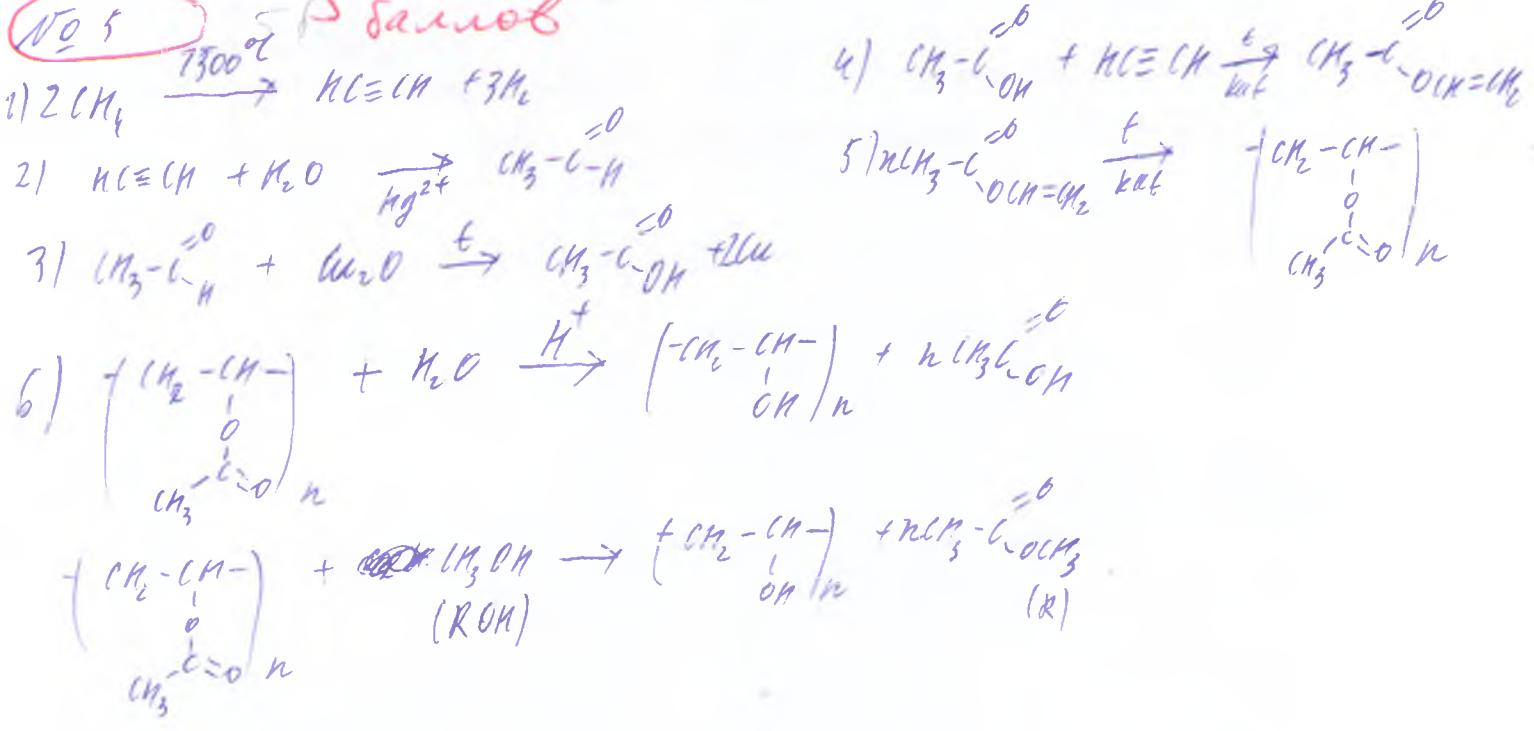 № 5 баллов
1) 2CH₄ 1500°C → HC≡CH + 3H₂
2) HC≡CH + H₂O →Hg²⁺ CH₃-C(=O)-H
3) CH₃-C(=O)-H + Cu₂O →t CH₃-C(=O)-OH + 2Cu
4) CH₃-C(=O)-OH + HC≡CH →t kat CH₃-C(=O)-OCH=CH₂
5) nCH₃-C(=O)-OCH=CH₂ →t kat (-CH₂-CH(-O-C(=O)-CH₃)-)n
6) (-CH₂-CH(-O-C(=O)-CH₃)-)n + H₂O →H⁺ (-CH₂-CH(-OH)-)n + nCH₃C(=O)-OH
(-CH₂-CH(-O-C(=O)-CH₃)-)n + CH₃OH → (-CH₂-CH(-OH)-)n + nCH₃-C(=O)-OCH₃
(ROH) (R)